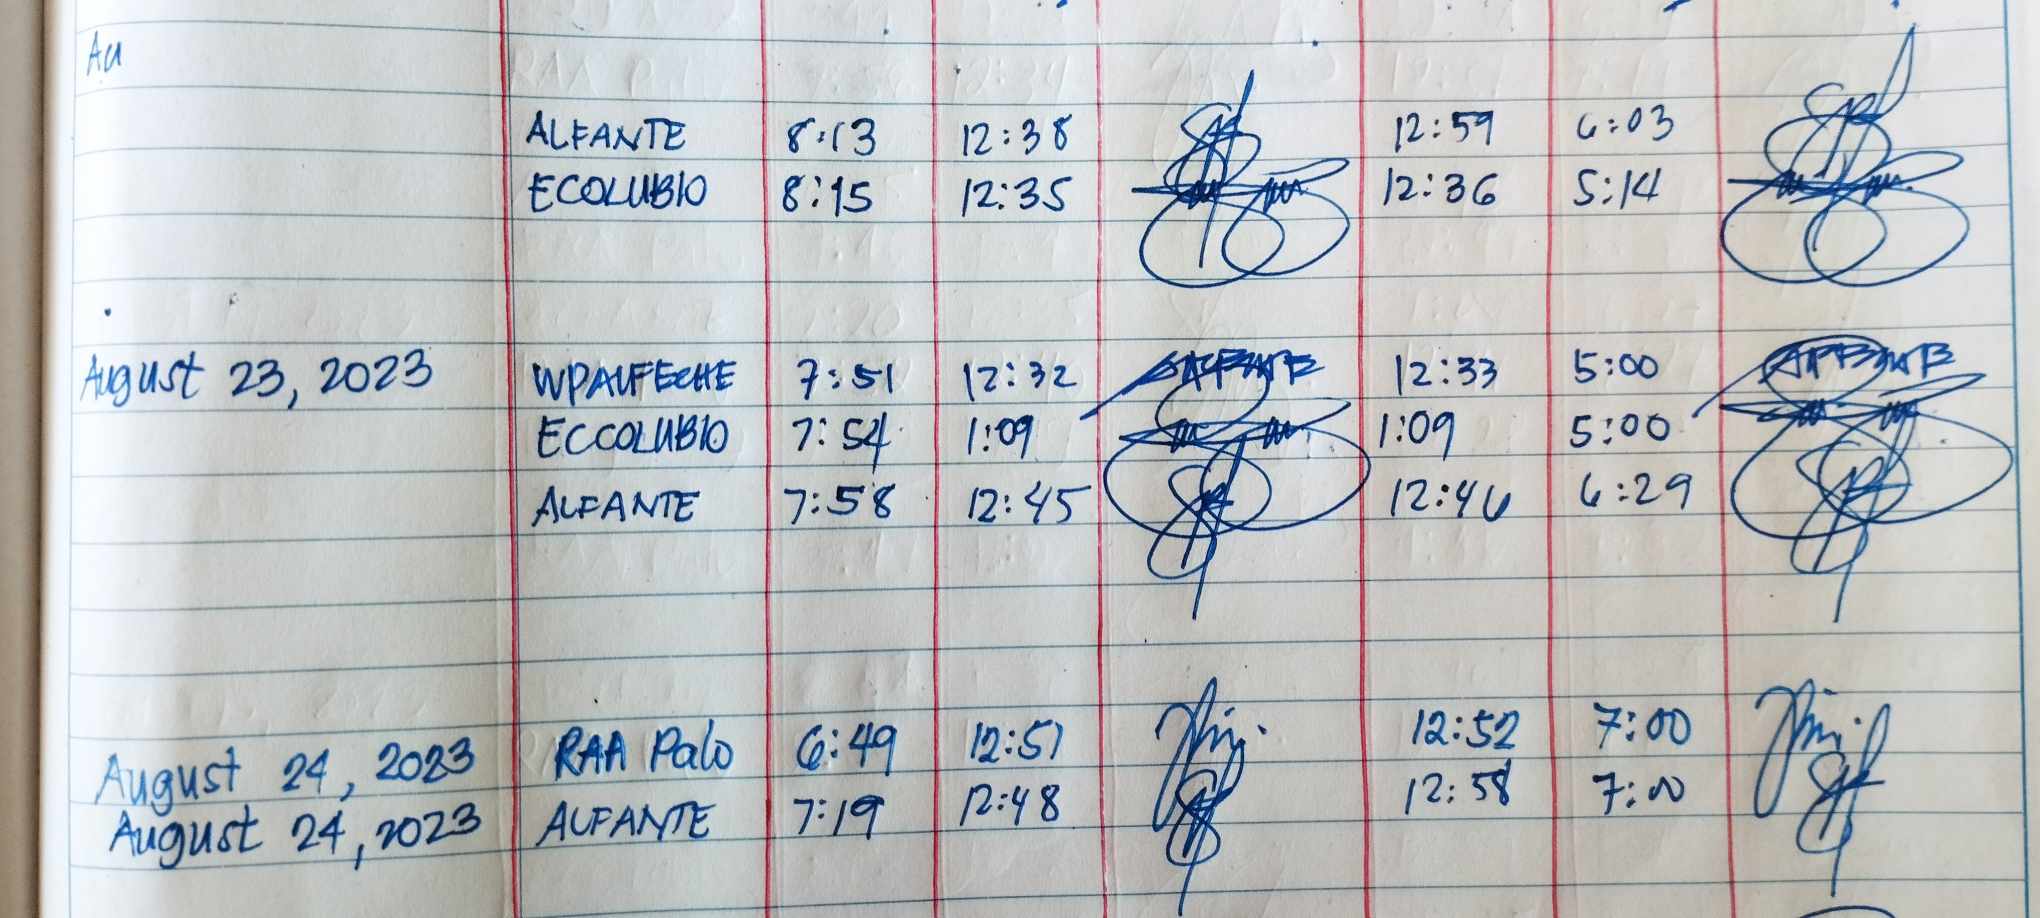 Au
ALFANTE 8:13 12:38 12:59 6:03
ECOLUBIO 8:15 12:35 12:36 5:14
August 23, 2023 WPALFECHE 7:51 12:32 12:33 5:00
ECCOLUBIO 7:54 1:09 1:09 5:00
ALFANTE 7:58 12:45 12:46 6:29
August 24, 2023 RAA Palo 6:49 12:51 12:52 7:00
August 24, 2023 ALFANTE 7:19 12:48 12:58 7:00